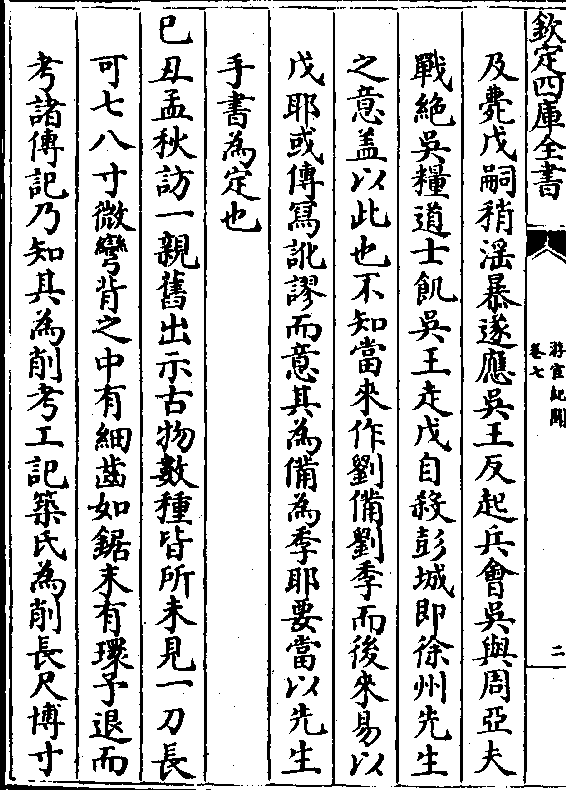 欽定四庫全書
游宦紀聞
卷七
二
及薨戊嗣稍淫暴遂應吳王反起兵會吳與周亞夫
戰絶吳糧道士飢吳王走戊自殺彭城即徐州先生
之意盖以此也不知當來作劉備劉季而後來易以
戊耶或傳寫訛謬而意其為備為季耶要當以先生
手書為定也
己丑孟秋訪一親舊出示古物數種皆所未見一刀長
可七八寸微彎背之中有細齒如鋸末有環予退而
考諸傳記乃知其為削考工記築氏為削長尺博寸